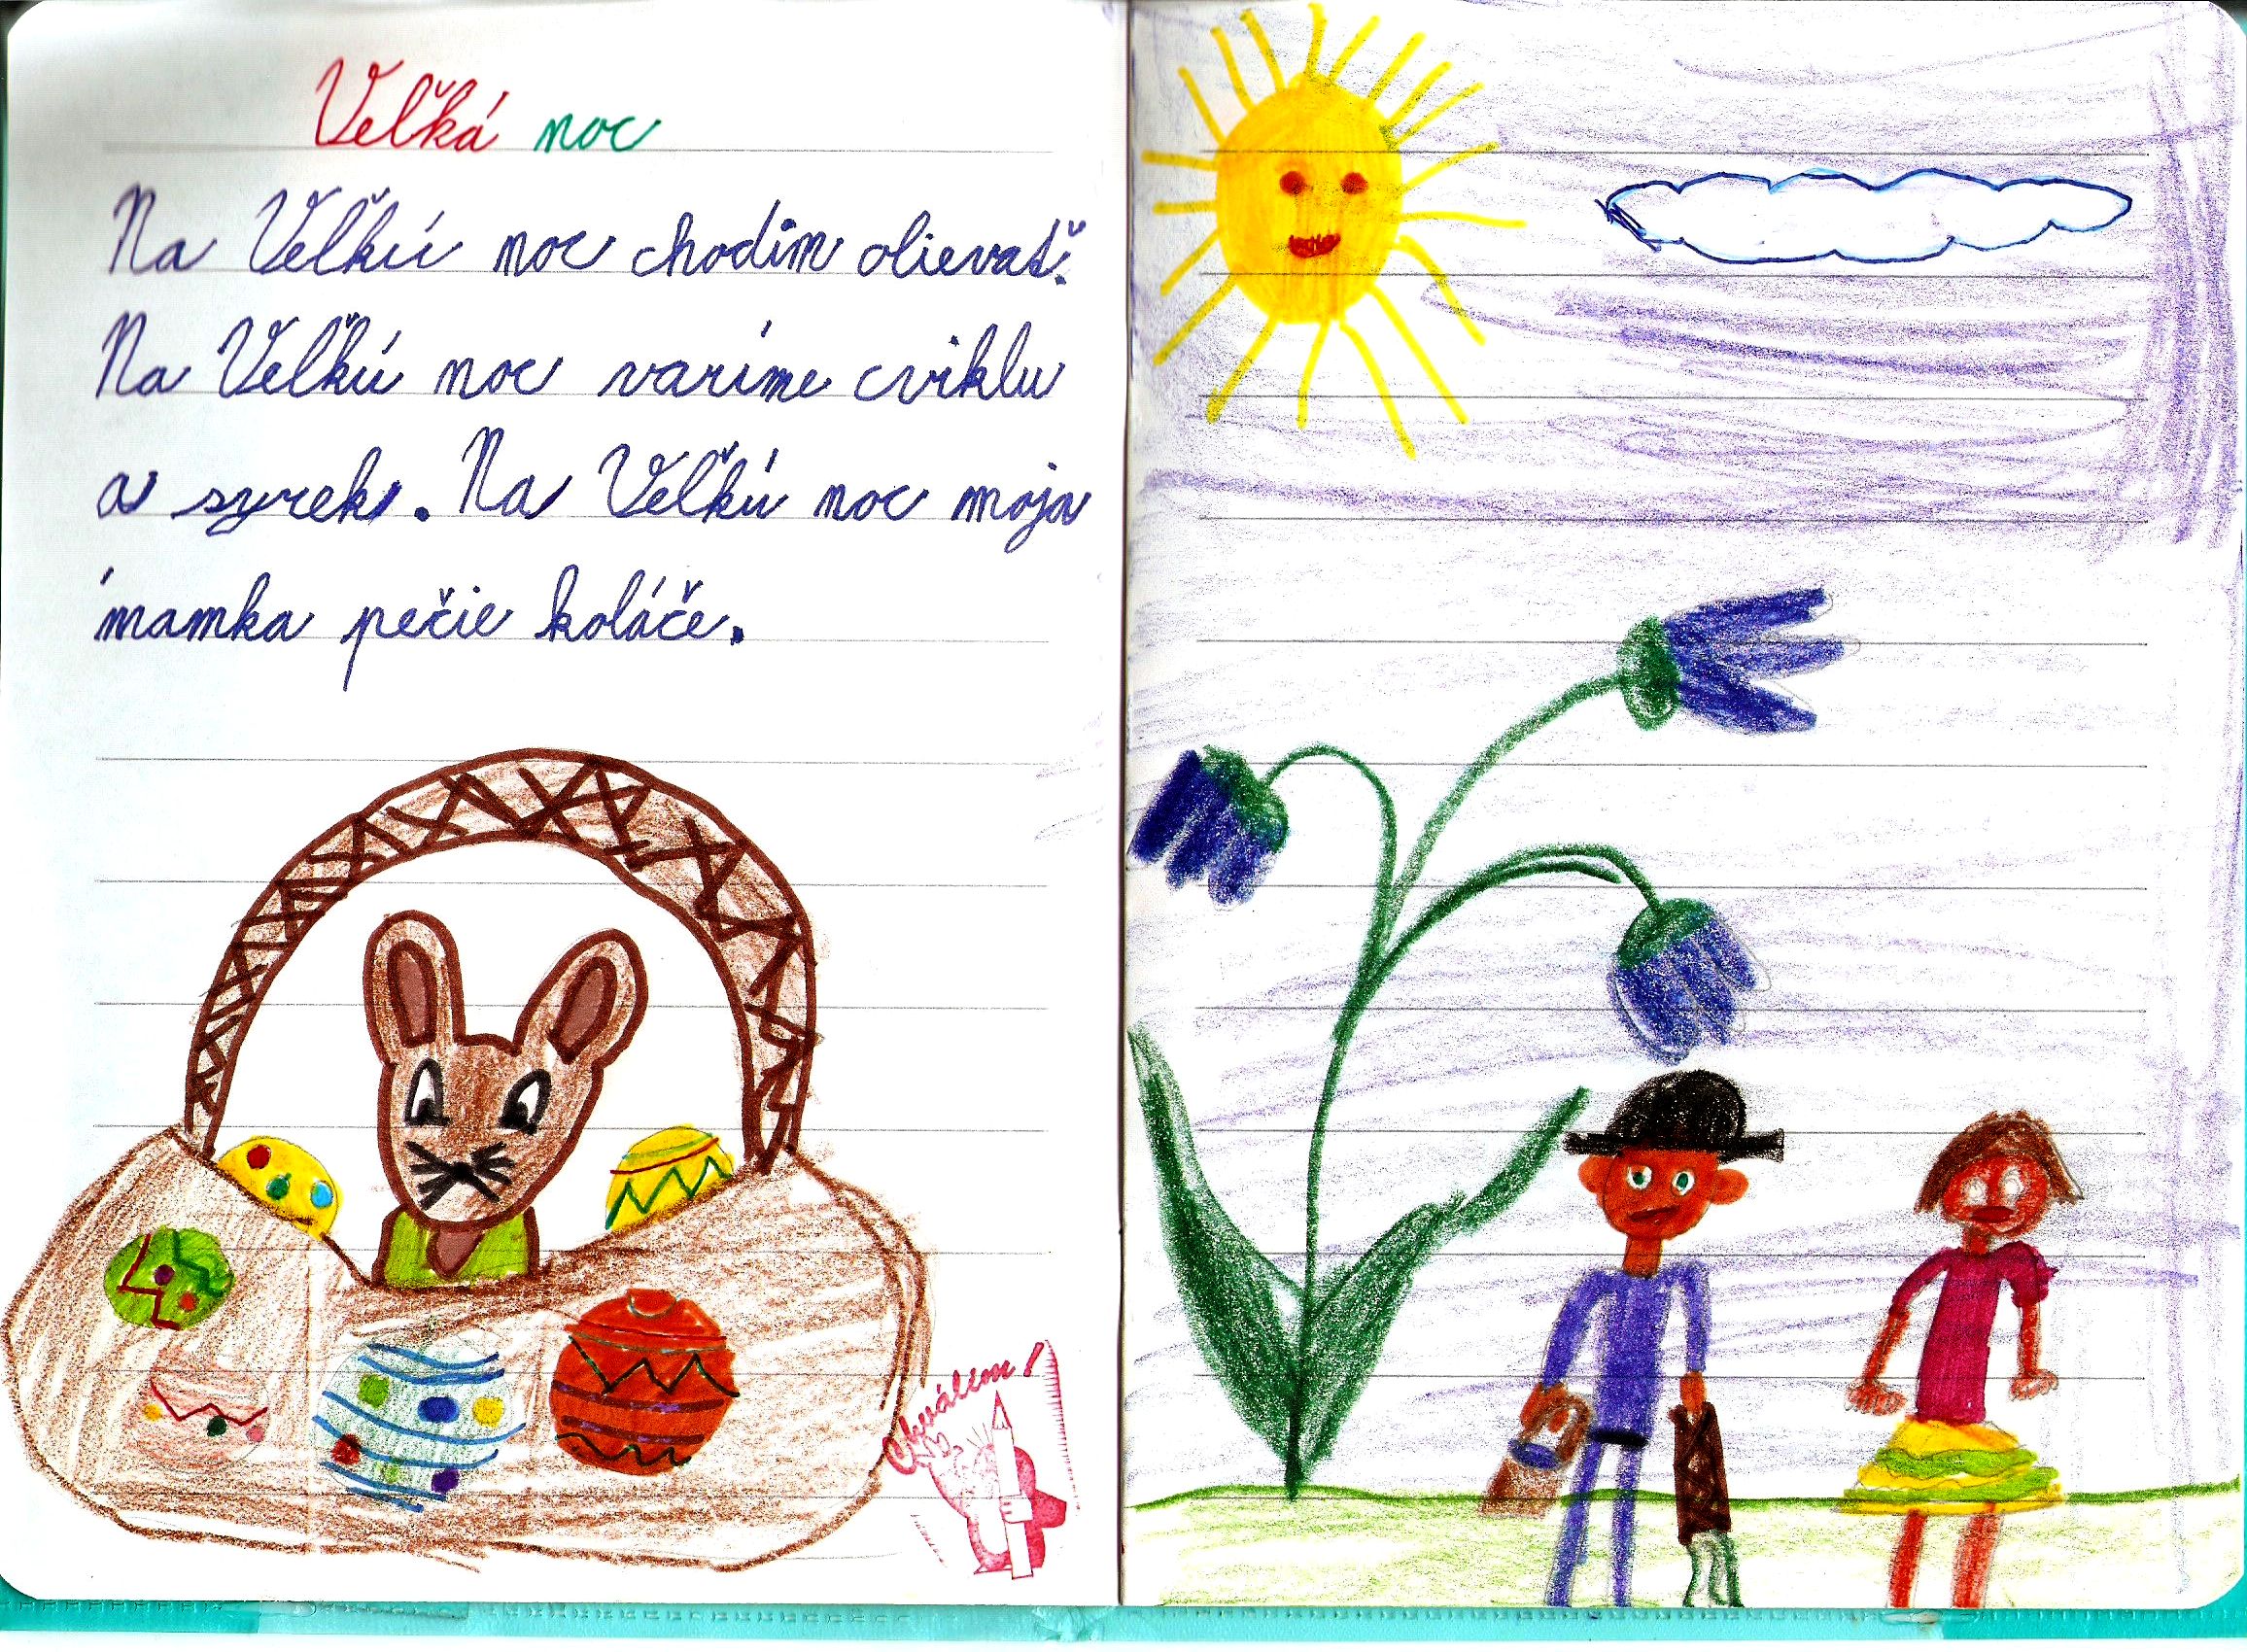 Veľká noc
Na Veľkú noc chodím olievať.
Na Veľkú noc varíme cviklu
a syrek. Na Veľkú noc moja
mamka pečie koláče.
Chválim!